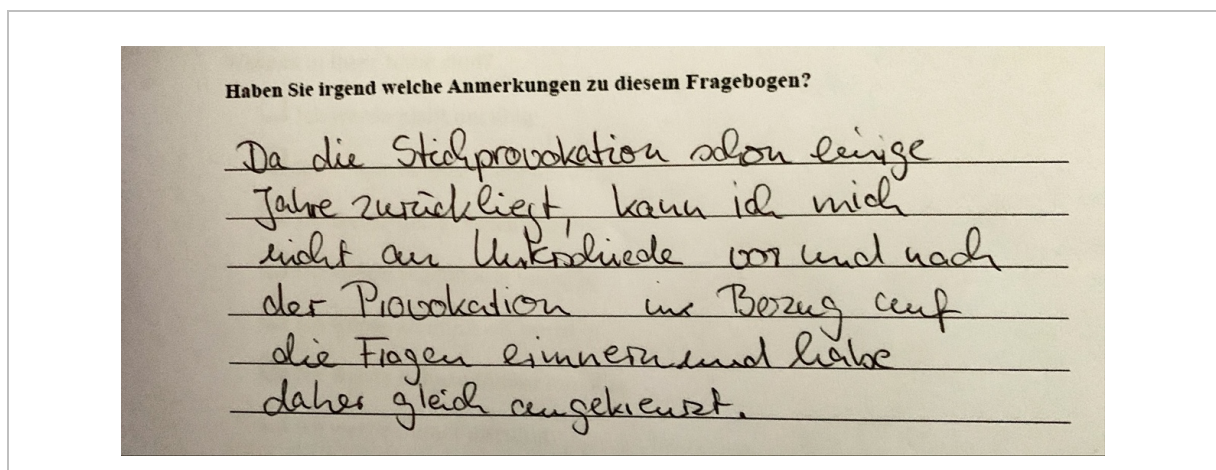 Haben Sie irgend welche Anmerkungen zu diesem Fragebogen?
Da die Stichprovokation schon einige
Jahre zurückliegt, kann ich mich
nicht an Unterschiede vor und nach
der Provokation in Bezug auf
die Fragen erinnern und habe
daher gleich angekreuzt.